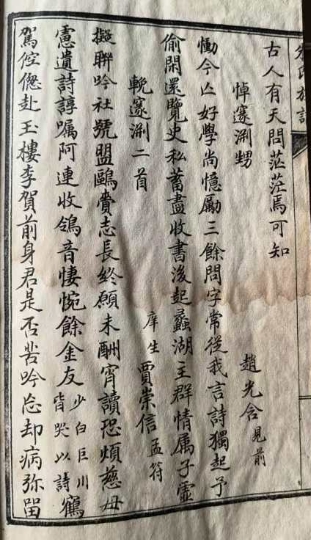 古人有天問茫茫焉可知
悼邃涮甥
趙光含見前
慟今亾好學尚憶勵三餘問字常從我言詩獨起予
偷閒還覽史私蓄盡收書後起蠡湖王群情属子虛
輓邃涮二首
庠生賈崇信孟符
擬聯吟社號盟鷗賫志長終願未酬宵讀恐煩慈母
慮遺詩諄嘱阿連收鴒音悽惋餘金友少白巨川皆哭以詩鶴
駕倥傯赴玉樓李賀前身君是否苦吟忘却病弥留